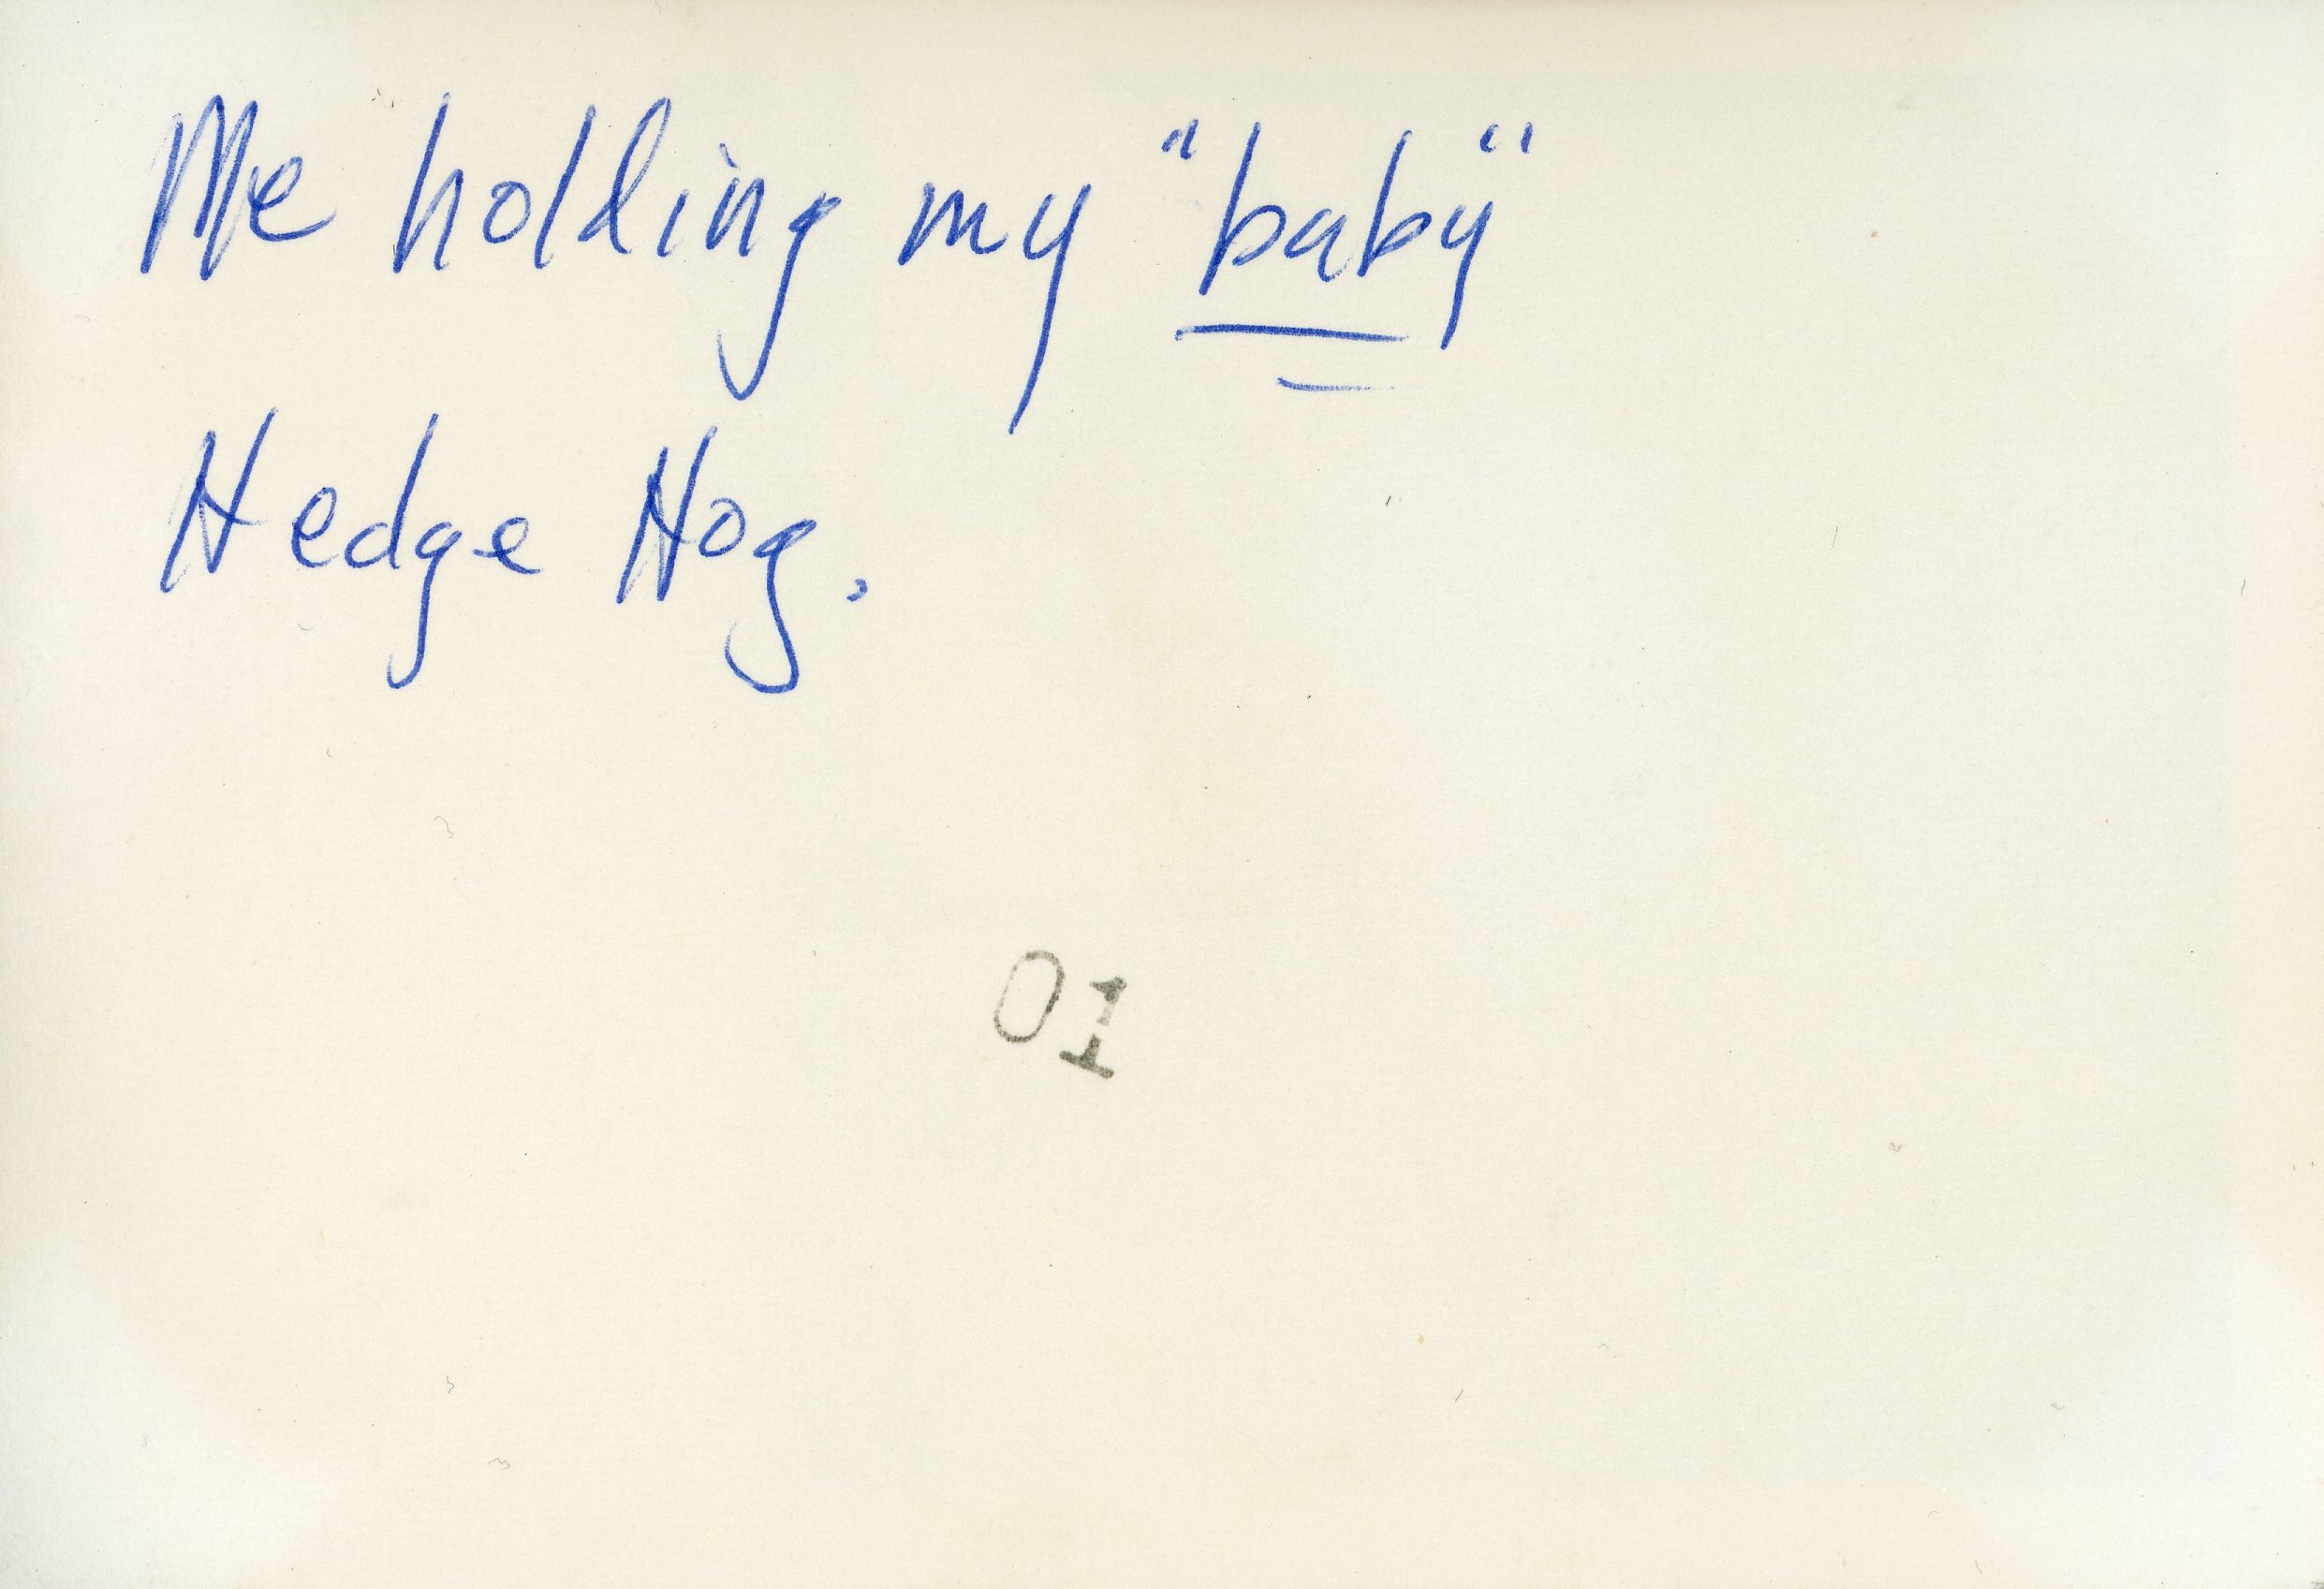 Me holding my "baby"
Hedge Hog.
01